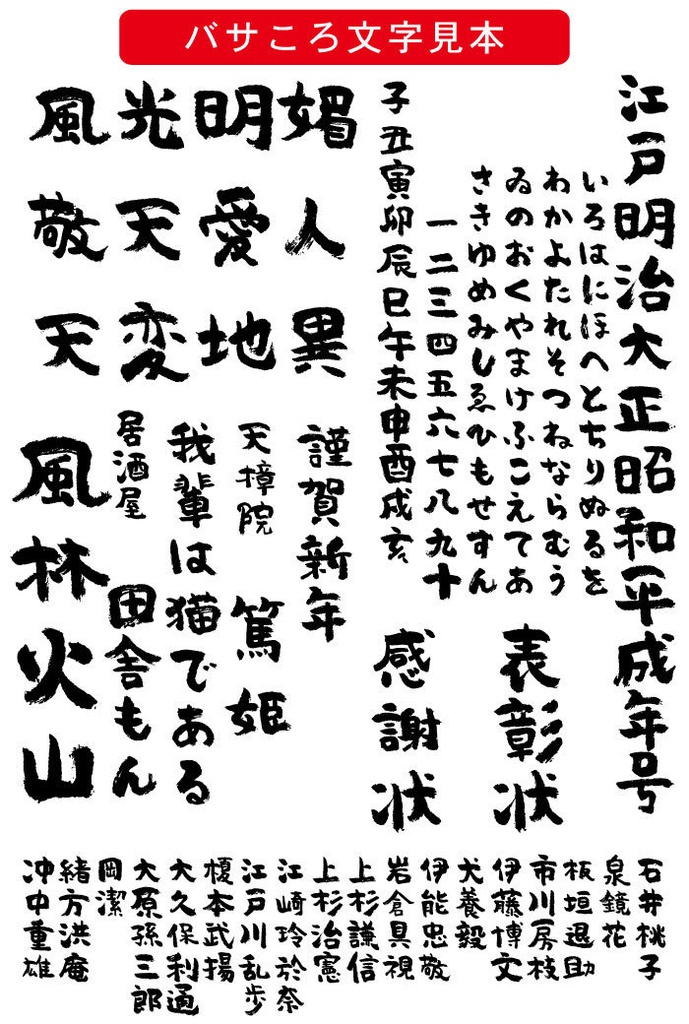 バサころ文字見本
江戸明治大正昭和平成年号
いろはにほへとちりぬるを
わかよたれそつねならむう
ゐのおくやまけふこえてあ
さきゆめみしゑひもせすん
一二三四五六七八九十
子丑寅卯辰巳午未申酉戌亥
表彰状
感謝状
媚人異
明愛地
光天変
風敬天
謹賀新年
天樟院
篤姫
我輩は猫である
居酒屋
田舎もん
風林火山
石井桃子
泉鏡花
板垣退助
市川房枝
伊藤博文
犬養毅
伊能忠敬
岩倉具視
上杉謙信
上杉治憲
江崎玲於奈
江戸川乱歩
榎本武揚
大久保利通
大原孫三郎
岡潔
緒方洪庵
沖中重雄